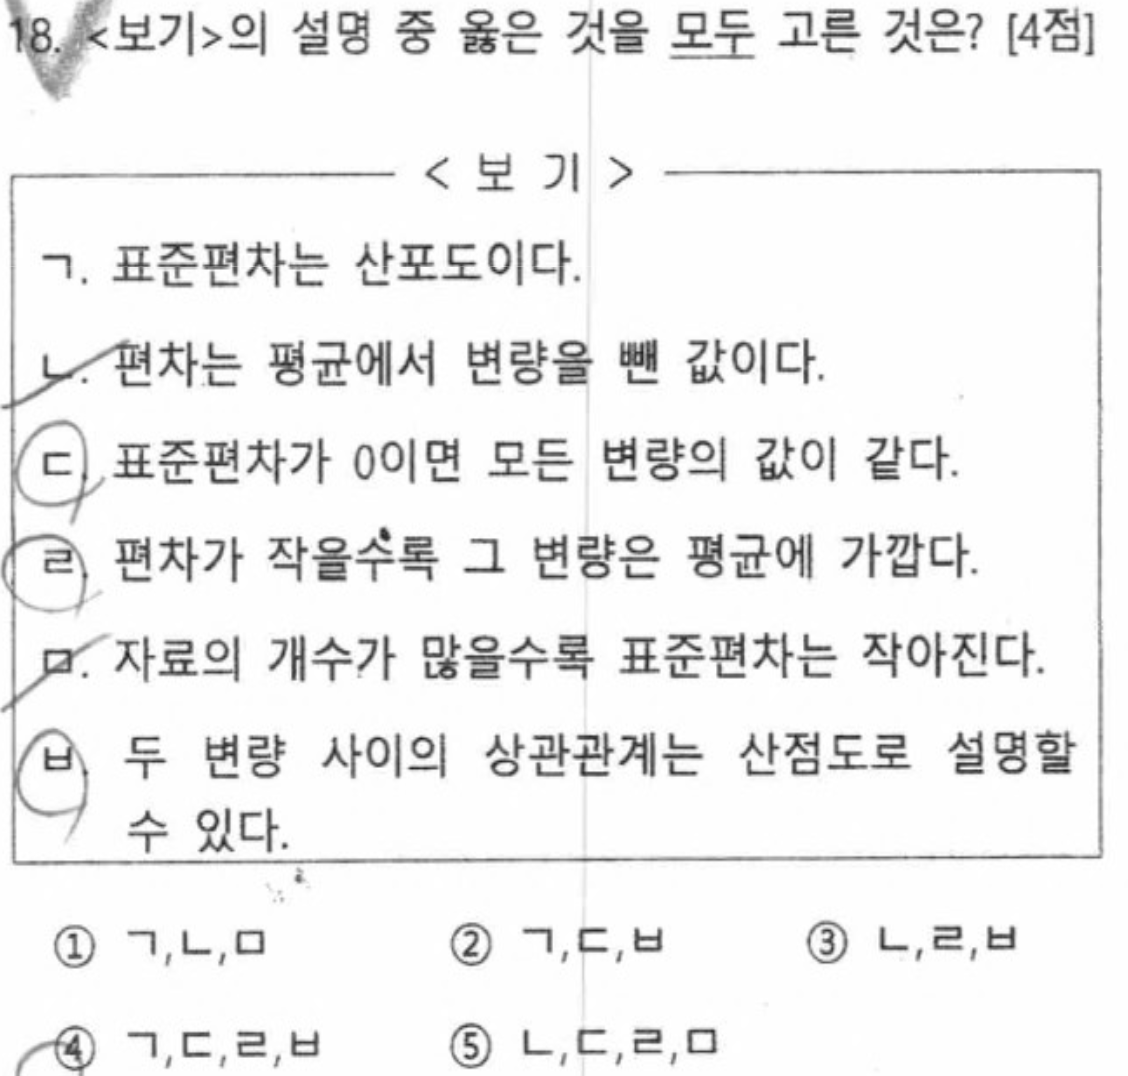 18. <보기>의 설명 중 옳은 것을 모두 고른 것은? [4점]
< 보 기 >
ㄱ. 표준편차는 산포도이다.
ㄴ. 편차는 평균에서 변량을 뺀 값이다.
ㄷ. 표준편차가 0이면 모든 변량의 값이 같다.
ㄹ. 편차가 작을수록 그 변량은 평균에 가깝다.
ㅁ. 자료의 개수가 많을수록 표준편차는 작아진다.
ㅂ. 두 변량 사이의 상관관계는 산점도로 설명할
수 있다.
① ㄱ,ㄴ,ㅁ ② ㄱ,ㄷ,ㅂ ③ ㄴ,ㄹ,ㅂ
④ ㄱ,ㄷ,ㄹ,ㅂ ⑤ ㄴ,ㄷ,ㄹ,ㅁ